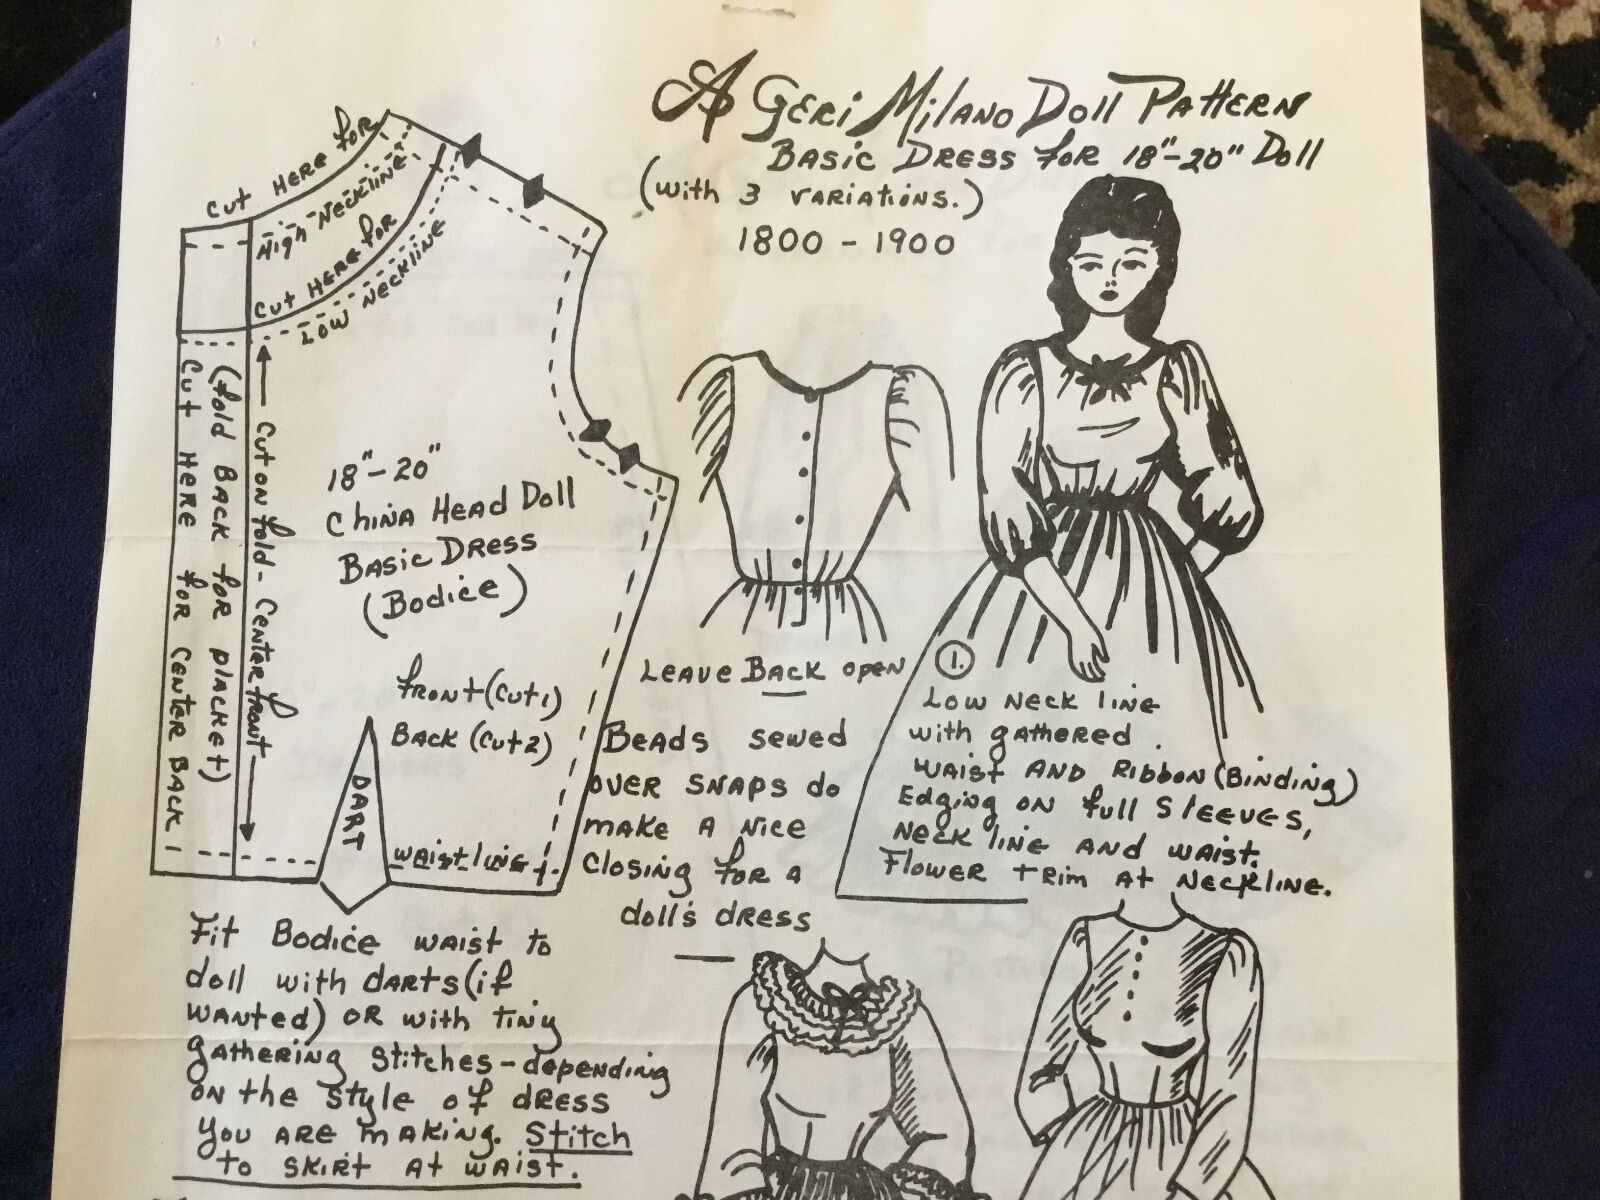 A Geri Milano Doll Pattern
Basic Dress for 18"-20" Doll
(with 3 variations.)
1800 - 1900
Cut Here for
High Neckline
Cut Here for
Low Neckline
Cut on fold - Center front
(fold back for placket)
Cut Here for Center Back
18"-20"
China Head Doll
Basic Dress
(Bodice)
Front (Cut 1)
Back (Cut 2)
Dart
waistline
Fit Bodice waist to
doll with darts (if
wanted) or with tiny
gathering stitches - depending
on the style of dress
you are making. Stitch
to skirt at waist.
Leave Back open
Beads sewed
over snaps do
make a nice
closing for a
doll's dress
1.
Low neck line
with gathered
waist and Ribbon (Binding)
Edging on full sleeves,
neck line and waist.
Flower trim at Neckline.